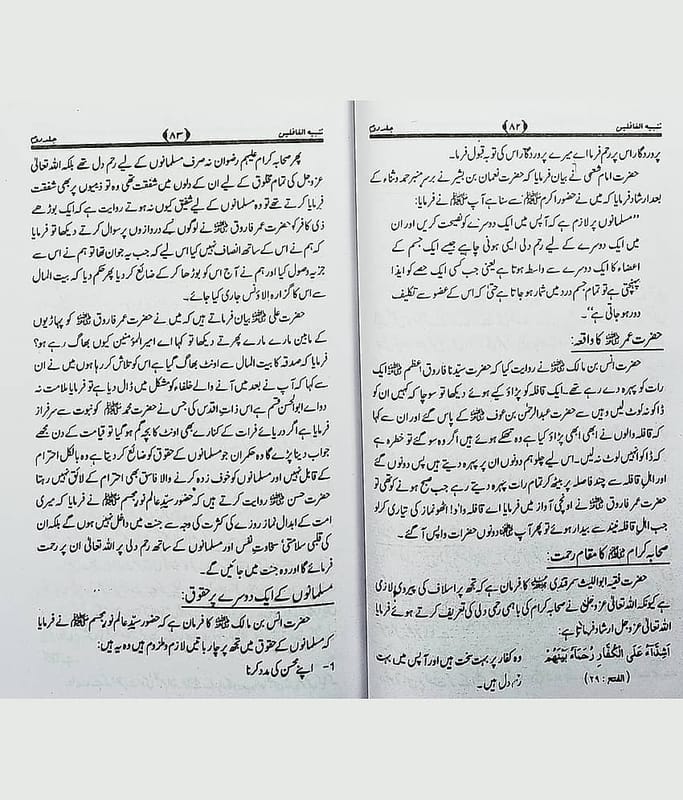 تنبیہ الغافلین ﴿۸۲﴾ جلد دوم
پروردگار اس پر رحم فرما اے میرے پروردگار اس کی توبہ قبول فرما۔
حضرت امام شعبی نے بیان فرمایا کہ حضرت نعمان بن بشیر نے برسر منبر حمد و ثناء کے
بعد ارشاد فرمایا کہ میں نے حضور اکرم ﷺ سے سنا ہے آپ ﷺ نے فرمایا:
"مسلمانوں پر لازم ہے کہ آپس میں ایک دوسرے کو نصیحت کریں اور ان
میں ایک دوسرے کے لیے رحم دلی ایسی ہونی چاہیے جیسے ایک جسم کے
اعضاء کا ایک دوسرے سے واسطہ ہوتا ہے یعنی جب کسی ایک حصے کو ایذا
پہنچتی ہے تو تمام جسم درد میں شمار ہو جاتا ہے حتیٰ کہ اس کے عضو سے تکلیف
دور ہو جاتی ہے"۔
حضرت عمر رضی اللہ عنہ کا واقعہ:
حضرت انس بن مالک رضی اللہ عنہ نے روایت کیا کہ حضرت سیدنا فاروق اعظم رضی اللہ عنہ ایک
رات کو پہرہ دے رہے تھے۔ ایک قافلہ کو پڑاؤ کیے ہوئے دیکھا تو سوچا کہ کہیں ان کو
ڈاکو نہ لوٹ لیں وہیں سے حضرت عبدالرحمٰن بن عوف رضی اللہ عنہ کے پاس گئے اور ان سے کہا
کہ قافلہ والوں نے ابھی ابھی پڑاؤ کیا ہے وہ تھکے ہوئے ہیں اگر وہ سو گئے تو خطرہ ہے
کہ ڈاکو انہیں لوٹ نہ لیں۔ اس لیے چلو ہم دونوں ان پر پہرہ دیتے ہیں پس دونوں گئے
اور اہل قافلہ سے چند فاصلہ پر بیٹھ کر تمام رات پہرہ دیتے رہے جب صبح ہونے کو تھی تو
حضرت عمر فاروق رضی اللہ عنہ نے اونچی آواز میں فرمایا اے قافلہ والو! اٹھو نماز کی تیاری کر لو
جب اہل قافلہ نیند سے بیدار ہوئے تو پھر آپ رضی اللہ عنہ دونوں حضرات واپس آ گئے۔
صحابہ کرام رضی اللہ عنہم کا مقام رحمت:
حضرت فقیہ ابواللیث سمرقندی رضی اللہ عنہ کا فرمان ہے کہ تجھ پر اسلاف کی پیروی لازمی
ہے کیونکہ اللہ تعالیٰ عزوجل نے صحابہ کرام کی باہمی رحمی دلی کی تعریف کرتے ہوئے فرمایا
اللہ تعالیٰ عزوجل ارشاد فرماتا ہے:
اَشِدَّآءُ عَلَی الْکُفَّارِ رُحَمَآءُ بَیْنَھُمْ وہ کفار پر بہت سخت ہیں اور آپس میں بہت
(الفتح: ۲۹) رحم دل ہیں۔
تنبیہ الغافلین ﴿۸۳﴾ جلد دوم
پھر صحابہ کرام علیہم رضوان نہ صرف مسلمانوں کے لیے رحم دل تھے بلکہ اللہ تعالیٰ
عزوجل کی تمام مخلوق کے لیے ان کے دلوں میں شفقت تھی وہ تو ذمیوں پر بھی شفقت
فرمایا کرتے تھے تو وہ مسلمانوں کے لیے شفیق کیوں نہ ہوتے روایت ہے کہ ایک بوڑھے
ذمی کافر کو حضرت عمر فاروق رضی اللہ عنہ نے لوگوں کے دروازوں پر سوال کرتے دیکھا تو فرمایا
کہ ہم نے اس کے ساتھ انصاف نہیں کیا اس لیے کہ جب یہ جوان تھا تو ہم نے اس سے
جزیہ وصول کیا اور ہم نے آج اس کو بوڑھا کر کے ضائع کر دیا پھر حکم دیا کہ بیت المال
سے اس کا گزارہ الاؤنس جاری کیا جائے۔
حضرت علی رضی اللہ عنہ بیان فرماتے ہیں کہ میں نے حضرت عمر فاروق رضی اللہ عنہ کو پہاڑیوں
کے مابین مارے مارے پھرتے دیکھا تو کہا اے امیر المؤمنین کیوں بھاگ رہے ہو؟
فرمایا کہ صدقہ کا بیت المال سے اونٹ بھاگ گیا ہے اس کو تلاش کر رہا ہوں میں نے ان
سے کہا کہ آپ نے بعد میں آنے والے خلفاء کو مشکل میں ڈال دیا ہے تو فرمایا ملامت نہ
دو اے ابوالحسن قسم ہے اس ذات اقدس کی جس نے حضرت محمد ﷺ کو نبوت سے سرفراز
فرمایا ہے اگر دریائے فرات کے کنارے بھی اونٹ کا بچہ گم ہو گیا تو قیامت کے دن مجھے
جواب دینا پڑے گا وہ حکمران جو مسلمانوں کے حقوق کو ضائع کر دیتا ہے وہ بالکل احترام
کے قابل نہیں اور مسلمانوں کو خوف زدہ کرنے والا فاسق بھی احترام کے لائق نہیں رہتا
حضرت حسن رضی اللہ عنہ روایت کرتے ہیں کہ حضور سید عالم نور مجسم ﷺ نے فرمایا کہ میری
امت کے ابدال نماز روزے کی کثرت کی وجہ سے جنت میں داخل نہیں ہوں گے بلکہ ان
کی قلبی سلامتی' سخاوت نفس اور مسلمانوں کے ساتھ رحم دلی پر اللہ تعالیٰ ان پر رحمت
فرمائے گا اور وہ جنت میں جائیں گے۔
مسلمانوں کے ایک دوسرے پر حقوق:
حضرت انس بن مالک رضی اللہ عنہ کا فرمان ہے کہ حضور سید عالم نور مجسم ﷺ نے فرمایا
کہ مسلمانوں کے حقوق میں تجھ پر چار باتیں لازم و ملزوم ہیں وہ یہ ہیں:
1- اپنے محسن کی مدد کرنا